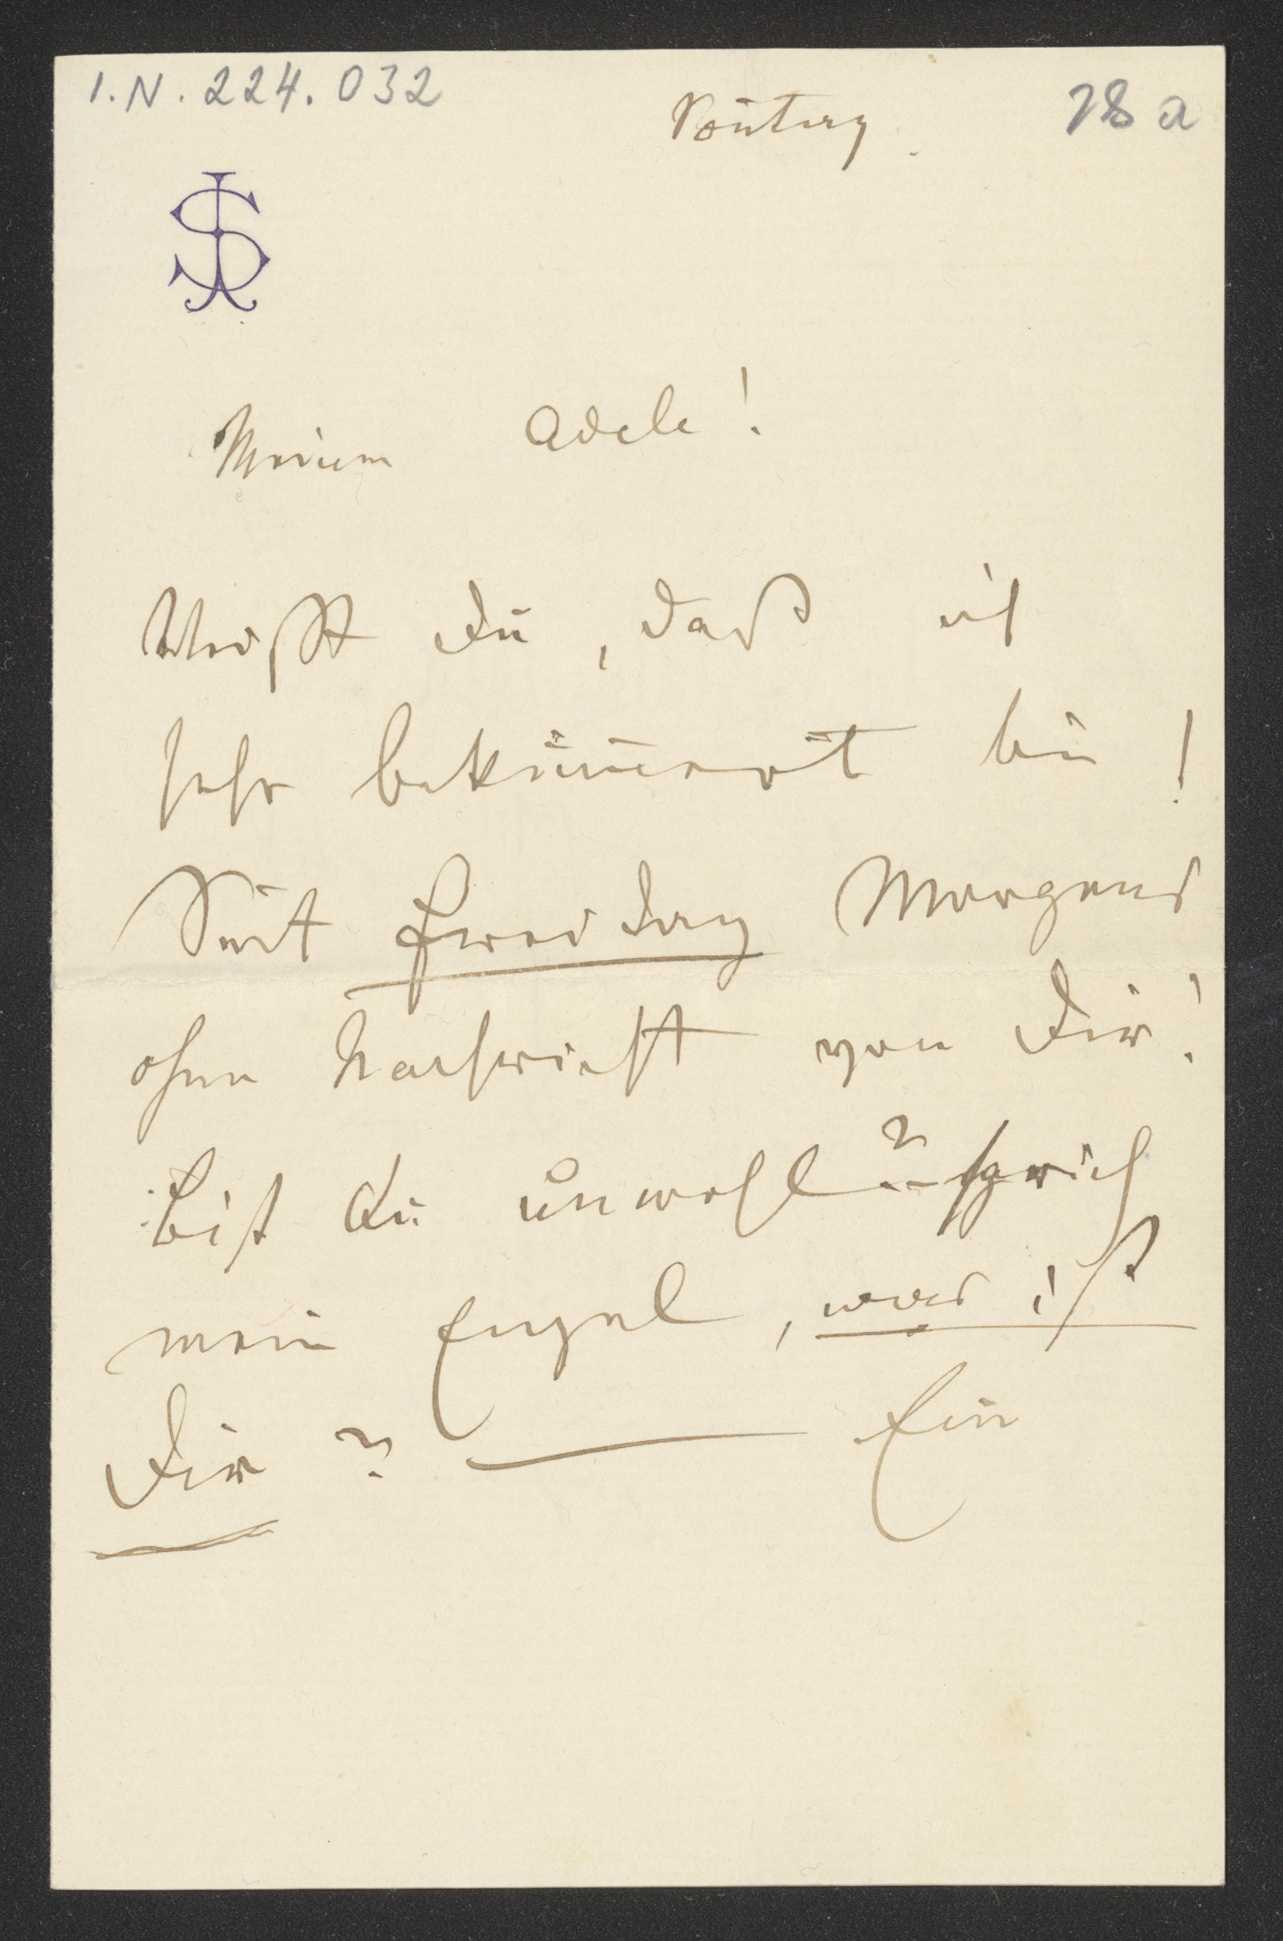 I.N. 224.032
Son̄tag. 28 a
JS
Meine Adele!
Weißt Du, daß ich
sehr beküm̄ert bin!
Seit Freitag Morgens
ohne Nachricht von Dir!
Bist Du unwohl? sprich
mein Engel, was ist
Dir? — Ein